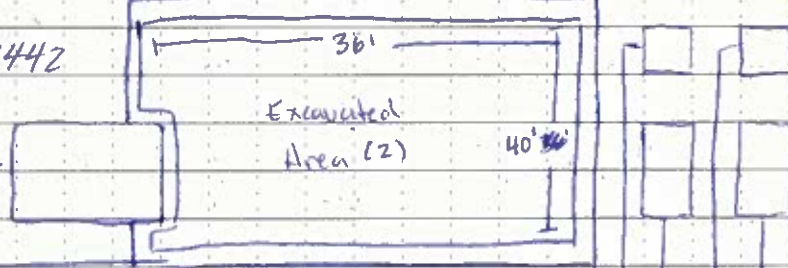 36'
442
Excavated
Area (2)
40'